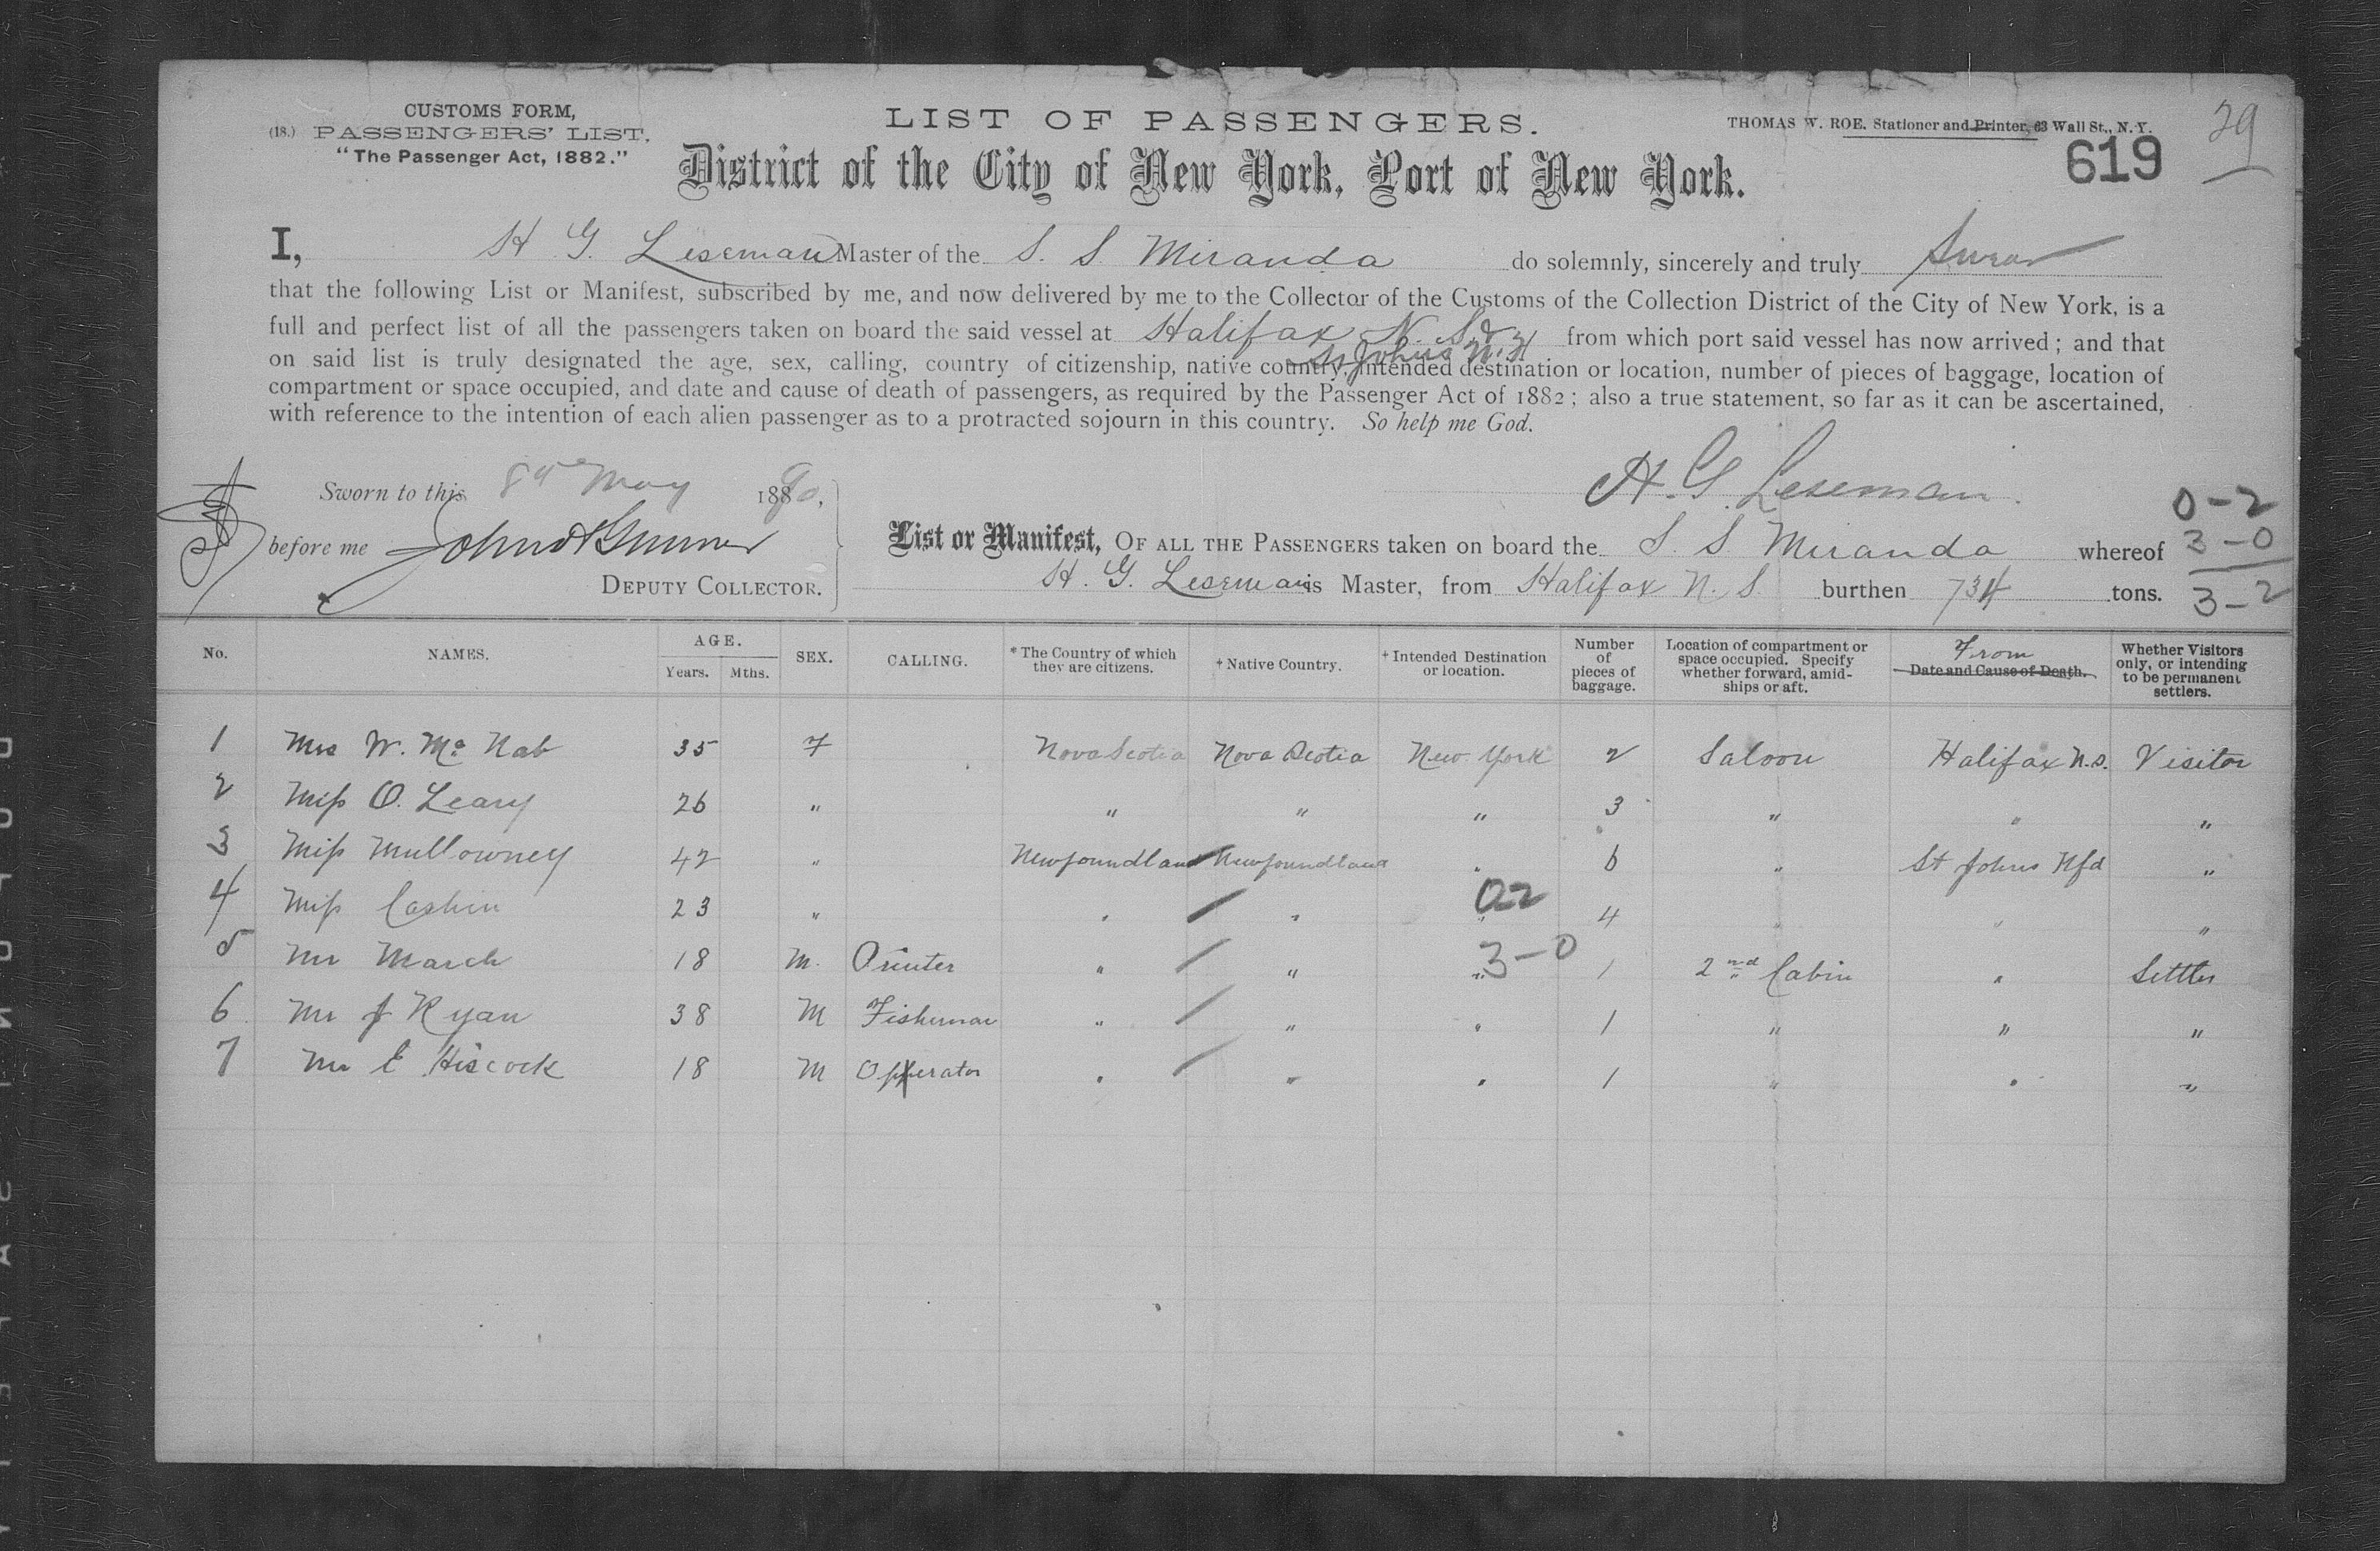 CUSTOMS FORM,
(18.) PASSENGERS' LIST.
"The Passenger Act, 1882."
LIST OF PASSENGERS.
THOMAS W. ROE. Stationer and Printer, 63 Wall St., N.Y.
29
619
District of the City of New York, Port of New York.
I, H G. Leseman Master of the S. S Miranda do solemnly, sincerely and truly Swear
that the following List or Manifest, subscribed by me, and now delivered by me to the Collector of the Customs of the Collection District of the City of New York, is a
full and perfect list of all the passengers taken on board the said vessel at Halifax N. S & from which port said vessel has now arrived; and that
St Johns N. F
on said list is truly designated the age, sex, calling, country of citizenship, native country, intended destination or location, number of pieces of baggage, location of
compartment or space occupied, and date and cause of death of passengers, as required by the Passenger Act of 1882; also a true statement, so far as it can be ascertained,
with reference to the intention of each alien passenger as to a protracted sojourn in this country. So help me God.
Sworn to this 8th May 1890.
H. G. Leseman.
before me John
DEPUTY COLLECTOR.
List or Manifest, OF ALL THE PASSENGERS taken on board the S. S Miranda whereof
H. G. Leseman is Master, from Halifax N. S. burthen 734 tons.
0-2
3-0
3-2
No. NAMES. AGE. Years. Mths. SEX. CALLING. * The Country of which they are citizens. † Native Country. † Intended Destination or location. Number of pieces of baggage. Location of compartment or space occupied. Specify whether forward, amidships or aft. From Date and Cause of Death. Whether Visitors only, or intending to be permanent settlers.
1 Mrs W. Mc Nab 35 F Nova Scotia Nova Scotia New York 2 Saloon Halifax N.S. Visitor
2 Miss O. Leary 26 " " " " 3 " " "
3 Miss Mullowney 42 " Newfoundland Newfoundland " 6 " St Johns Nfd "
4 Miss Cashin 23 " " " " 02 4 " " "
5 Mr March 18 M. Printer " " " 3-0 1 2nd Cabin " Settler
6 Mr J Ryan 38 M Fisherman " " " 1 " " "
7 Mr E Hiscock 18 M Opperator " " " 1 " " "